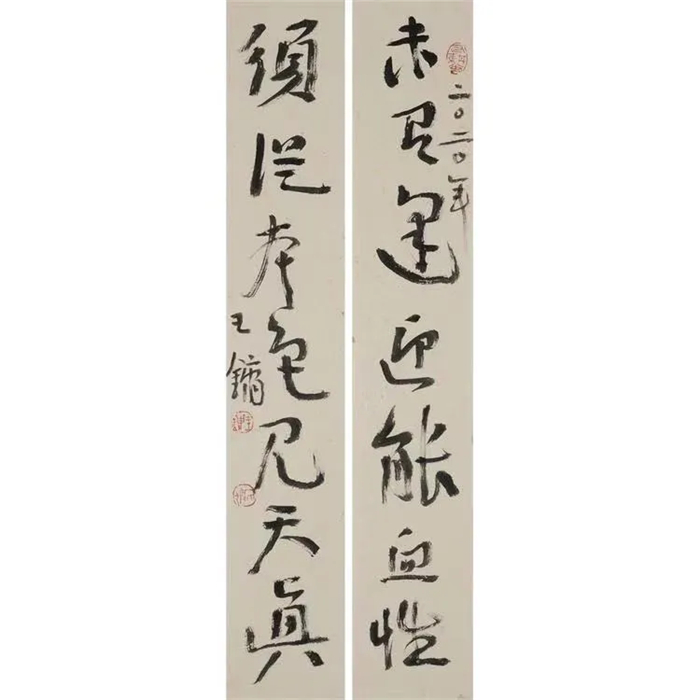 未有逢迎能血性
二〇二〇年
須從本色見天真
王鏞